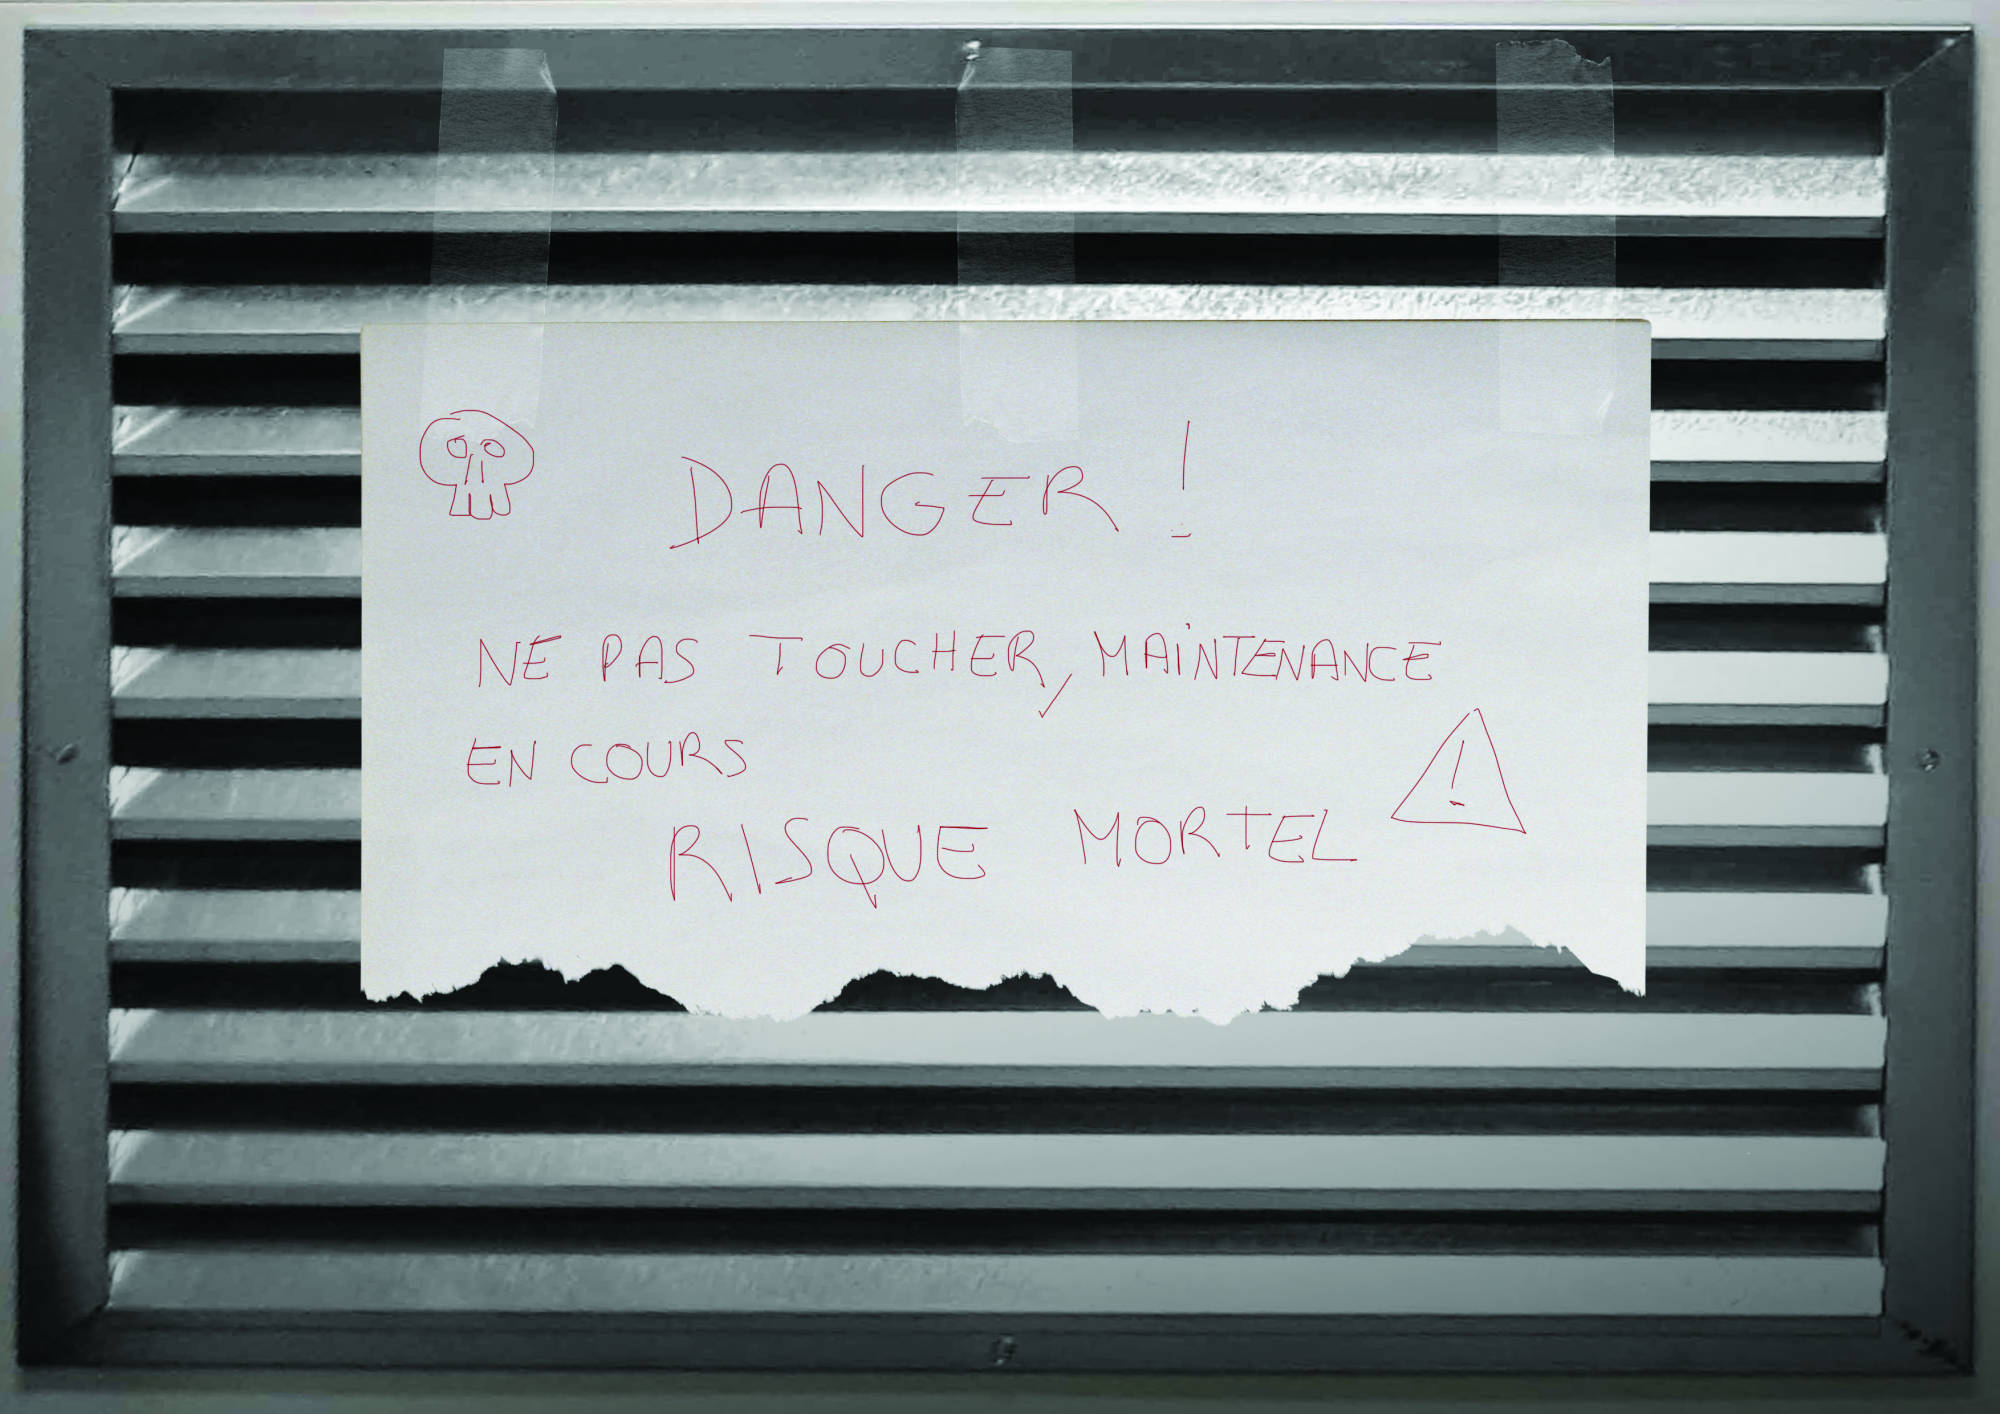 DANGER !
NE PAS TOUCHER, MAINTENANCE
EN COURS
RISQUE MORTEL
!